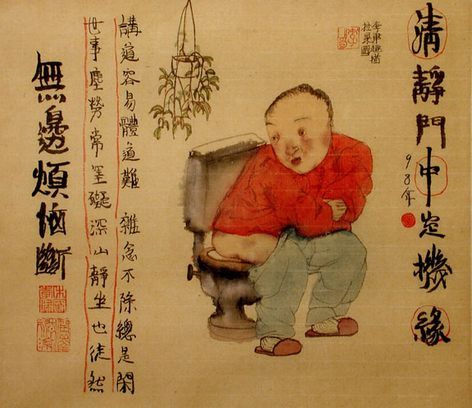 清靜門中㝎機緣
98年
講道容易體道難 雜念不除總是閑
世事塵勞常罣礙 深山靜坐也徒然
無邊煩惱斷